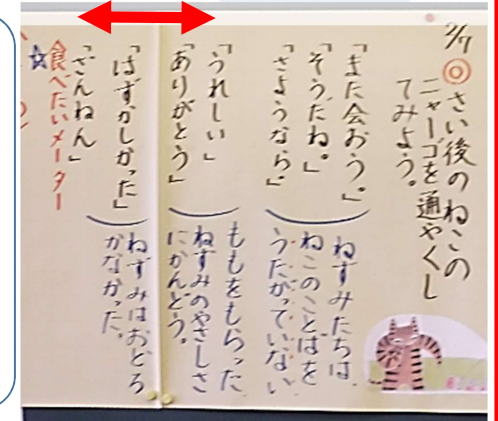 2/7
◎さい後のねこの
ニャーゴを通やくし
てみよう。
「また会おう。」
「そうだね。」
「さようなら。」
ねずみたちは
ねこのことばを
うたがっていない
「うれしい」
「ありがとう」
ももをもらった
ねずみのやさしさ
にかんどう。
「はずかしかった」
「ざんねん」
ねずみはおどろ
かなかった。
食べたいメーター
☆